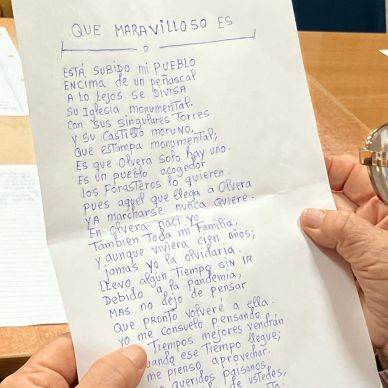 QUE MARAVILLOSO ES
ESTÁ SUBIDO mi PUEBLO
ENCIMA de un peñascal
A LO LEJOS SE DIVISA
SU IgLESIA monumental.
con SUS singulares Torres
y su CASTILLO moruno,
Que estampa monumental,
Es que Olvera Solo hay uno.
Es un pueblo acogedor
los ForasTeros lo quieren.
pues aquel que llega a Olvera
YA marcharse nunca quiere.
En Olvera nací yo
Tambien Toda mi Familia,
y aunque viviera cien años;
jamas yo la olvidaria.
LLevo algún Tiempo sin IR
Debido a la pandemia,
MAS no dejo de pensar
Que pronto volveré a ella.
yo me consuelo pensando
Tiempos mejores vendran
uando ese Tiempo llegue,
me pienso aprovechar.
queridos paisanos
de ustedes,